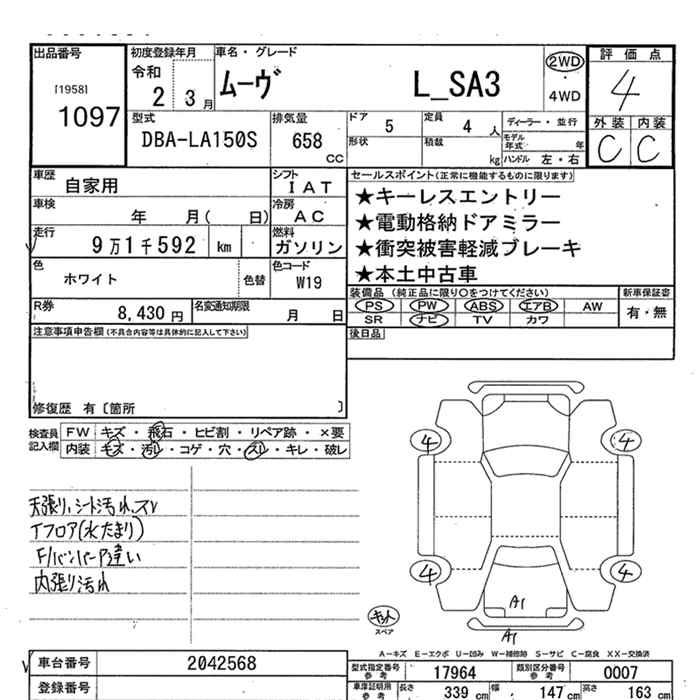 出品番号
[1958]
1097
初度登録年月
令和
2 3月
車名・グレード
ムーヴ
L_SA3
2WD
・
4WD
評価点
4
外装 内装
C C
型式
DBA-LA150S
排気量
658
CC
ドア 5
定員 4 人
形状
積載 kg
ディーラー・並行
モデル年式 年
ハンドル 左・右
車歴 自家用
シフト
IAT
車検 年 月( 日)
冷房
AC
走行 9万1千592 km
燃料
ガソリン
色 ホワイト 色替
色コード
W19
セールスポイント(正常に機能するものに限ります)
★キーレスエントリー
★電動格納ドアミラー
★衝突被害軽減ブレーキ
★本土中古車
R券 8,430 円
名変通知期限 月 日
装備品 (純正品に限り○をつけてください)
PS PW ABS エアB AW
SR ナビ TV カワ
新車保証書
有・無
注意事項申告欄(不具合内容等は具体的に記入して下さい)
後日品
修復歴 有〔箇所 〕
検査員
記入欄
FW キズ・飛石・ヒビ割・リペア跡・×要
内装 キズ・汚レ・コゲ・穴・スレ・キレ・破レ
天張り、シート汚れ、スレ
Tフロア(水たまり)
F/バンパーP違い
内張り汚れ
4 4
4 4
A1
A1
スペア
A-キズ E-エクボ U-凹み W-補修跡 S-サビ C-腐食 XX-交換済
車台番号 2042568
登録番号
型式指定番号
参考
17964
類別区分番号
参考
0007
車庫証明用
参考
長さ 339 cm
幅 147 cm
高さ 163 cm